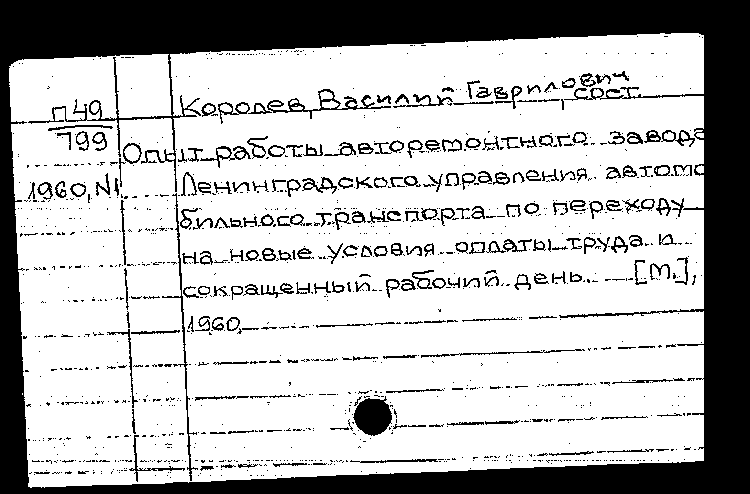 п49
799
1960, N1
Королев, Василий Гаврилович
, сост.
Опыт работы авторемонтного завода
Ленинградского управления автомо
бильного транспорта по переходу
на новые условия оплаты труда и
сокращенный рабочий день. — [М.],
1960.